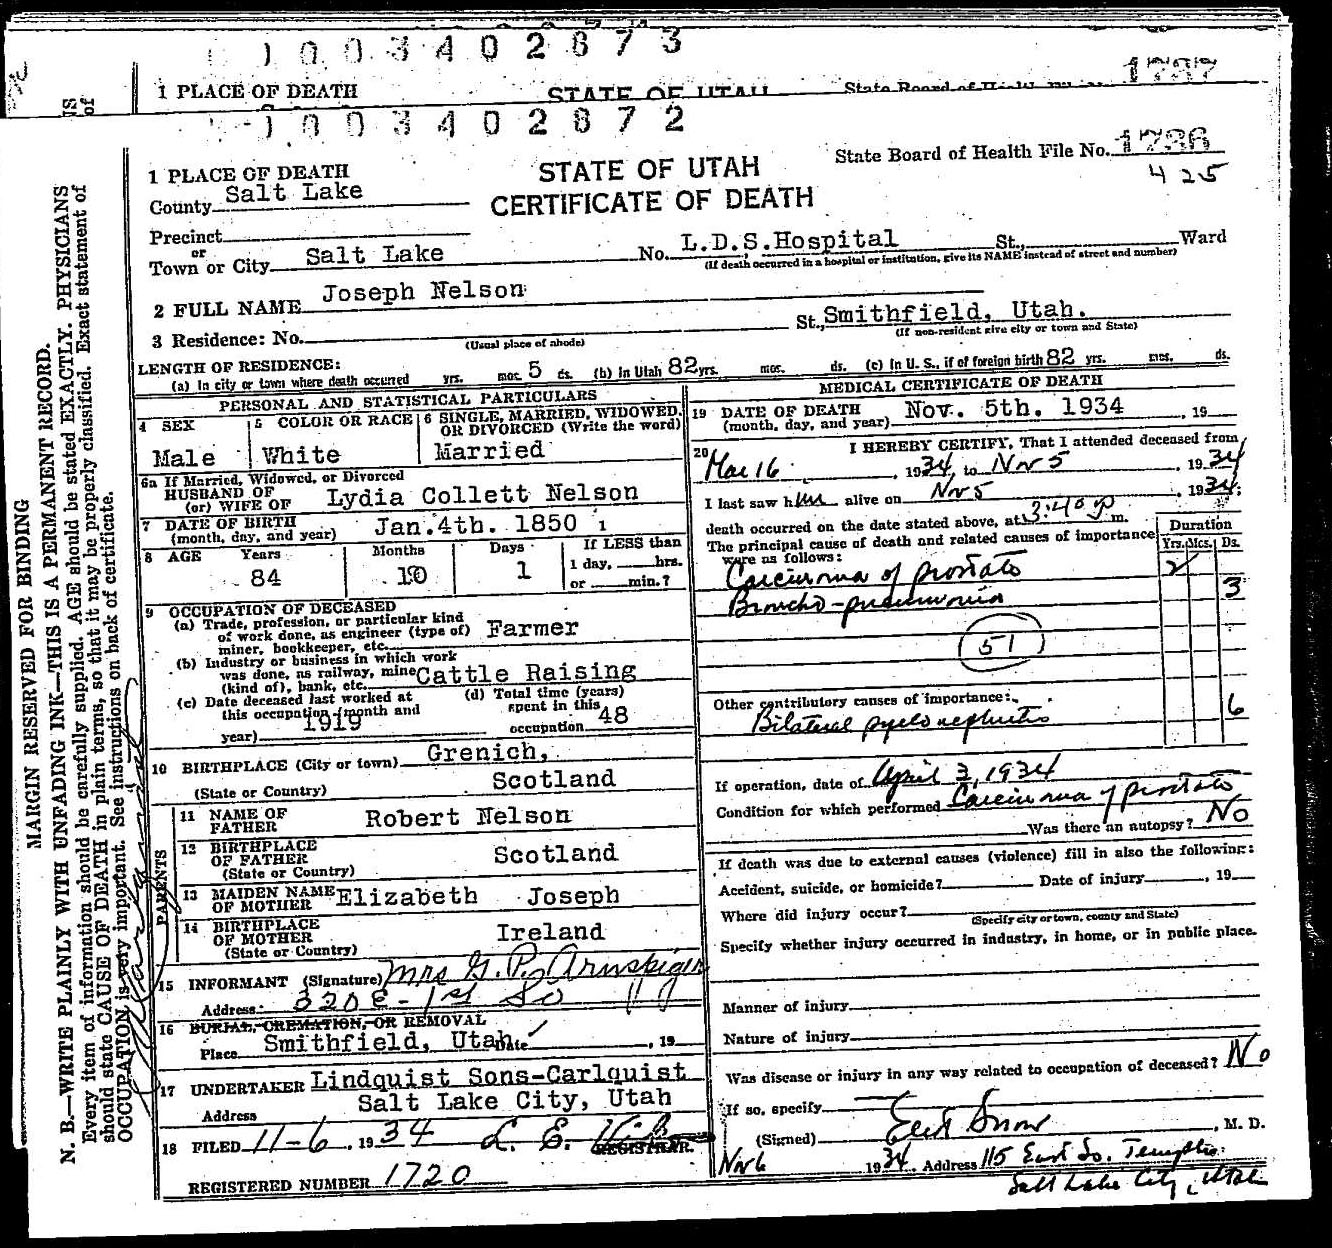 1003402873
1 PLACE OF DEATH STATE OF UTAH State Board of Health 1737
1003402872
State Board of Health File No. 1736
425
STATE OF UTAH
CERTIFICATE OF DEATH
1 PLACE OF DEATH
County Salt Lake
Precinct
or
Town or City Salt Lake No. L.D.S. Hospital St., Ward
(If death occurred in a hospital or institution, give its NAME instead of street and number)
2 FULL NAME Joseph Nelson
3 Residence: No. St., Smithfield, Utah.
(Usual place of abode) (If non-resident give city or town and State)
LENGTH OF RESIDENCE:
(a) In city or town where death occurred yrs. mos. 5 ds. (b) In Utah 82 yrs. mos. ds. (c) In U. S., if of foreign birth 82 yrs. mos. ds.
PERSONAL AND STATISTICAL PARTICULARS
4 SEX Male
5 COLOR OR RACE White
6 SINGLE, MARRIED, WIDOWED, OR DIVORCED (Write the word) Married
6a If Married, Widowed, or Divorced
HUSBAND OF
(or) WIFE OF Lydia Collett Nelson
7 DATE OF BIRTH
(month, day, and year) Jan. 4th. 1850
8 AGE Years 84 Months 10 Days 1 If LESS than
1 day, hrs.
or min.?
9 OCCUPATION OF DECEASED
(a) Trade, profession, or particular kind
of work done, as engineer (type of)
miner, bookkeeper, etc. Farmer
(b) Industry or business in which work
was done, as railway, mine
(kind of), bank, etc. Cattle Raising
(c) Date deceased last worked at
this occupation (month and
year) 1919
(d) Total time (years)
spent in this
occupation 48
10 BIRTHPLACE (City or town) Grenich,
(State or Country) Scotland
PARENTS
11 NAME OF
FATHER Robert Nelson
12 BIRTHPLACE
OF FATHER
(State or Country) Scotland
13 MAIDEN NAME
OF MOTHER Elizabeth Joseph
14 BIRTHPLACE
OF MOTHER
(State or Country) Ireland
15 INFORMANT (Signature) Mrs G. P.
Address: 320 E - 1st So
16 BURIAL, CREMATION, OR REMOVAL
Place Smithfield, Utah Date , 19
17 UNDERTAKER Lindquist Sons-Carlquist
Address Salt Lake City, Utah
18 FILED 11-6, 1934 L. E.
REGISTRAR.
REGISTERED NUMBER 1720
MEDICAL CERTIFICATE OF DEATH
19 DATE OF DEATH
(month, day, and year) Nov. 5th. 1934 , 19
20 I HEREBY CERTIFY, That I attended deceased from
Mar 16, 1934, to Nov 5, 1934
I last saw him alive on Nov 5, 1934;
death occurred on the date stated above, at 3:40 p m.
The principal cause of death and related causes of importance
were as follows:
Duration
Yrs. Mos. Ds.
Carcinoma of prostate 2
Broncho-pneumonia 3
51
Other contributory causes of importance:
Bilateral pyelonephritis 6
If operation, date of April 3, 1934
Condition for which performed Carcinoma of prostate
Was there an autopsy? No
If death was due to external causes (violence) fill in also the following:
Accident, suicide, or homicide? Date of injury , 19
Where did injury occur?
(Specify city or town, county and State)
Specify whether injury occurred in industry, in home, or in public place.
Manner of injury
Nature of injury
Was disease or injury in any way related to occupation of deceased? No
If so, specify
(Signed) Snow, M. D.
Nov 6 1934, Address 115 East So. Temple
Salt Lake City, Utah
MARGIN RESERVED FOR BINDING
N. B.—WRITE PLAINLY WITH UNFADING INK—THIS IS A PERMANENT RECORD.
Every item of information should be carefully supplied. AGE should be stated EXACTLY. PHYSICIANS
should state CAUSE OF DEATH in plain terms, so that it may be properly classified. Exact statement of
OCCUPATION is very important. See instructions on back of certificate.